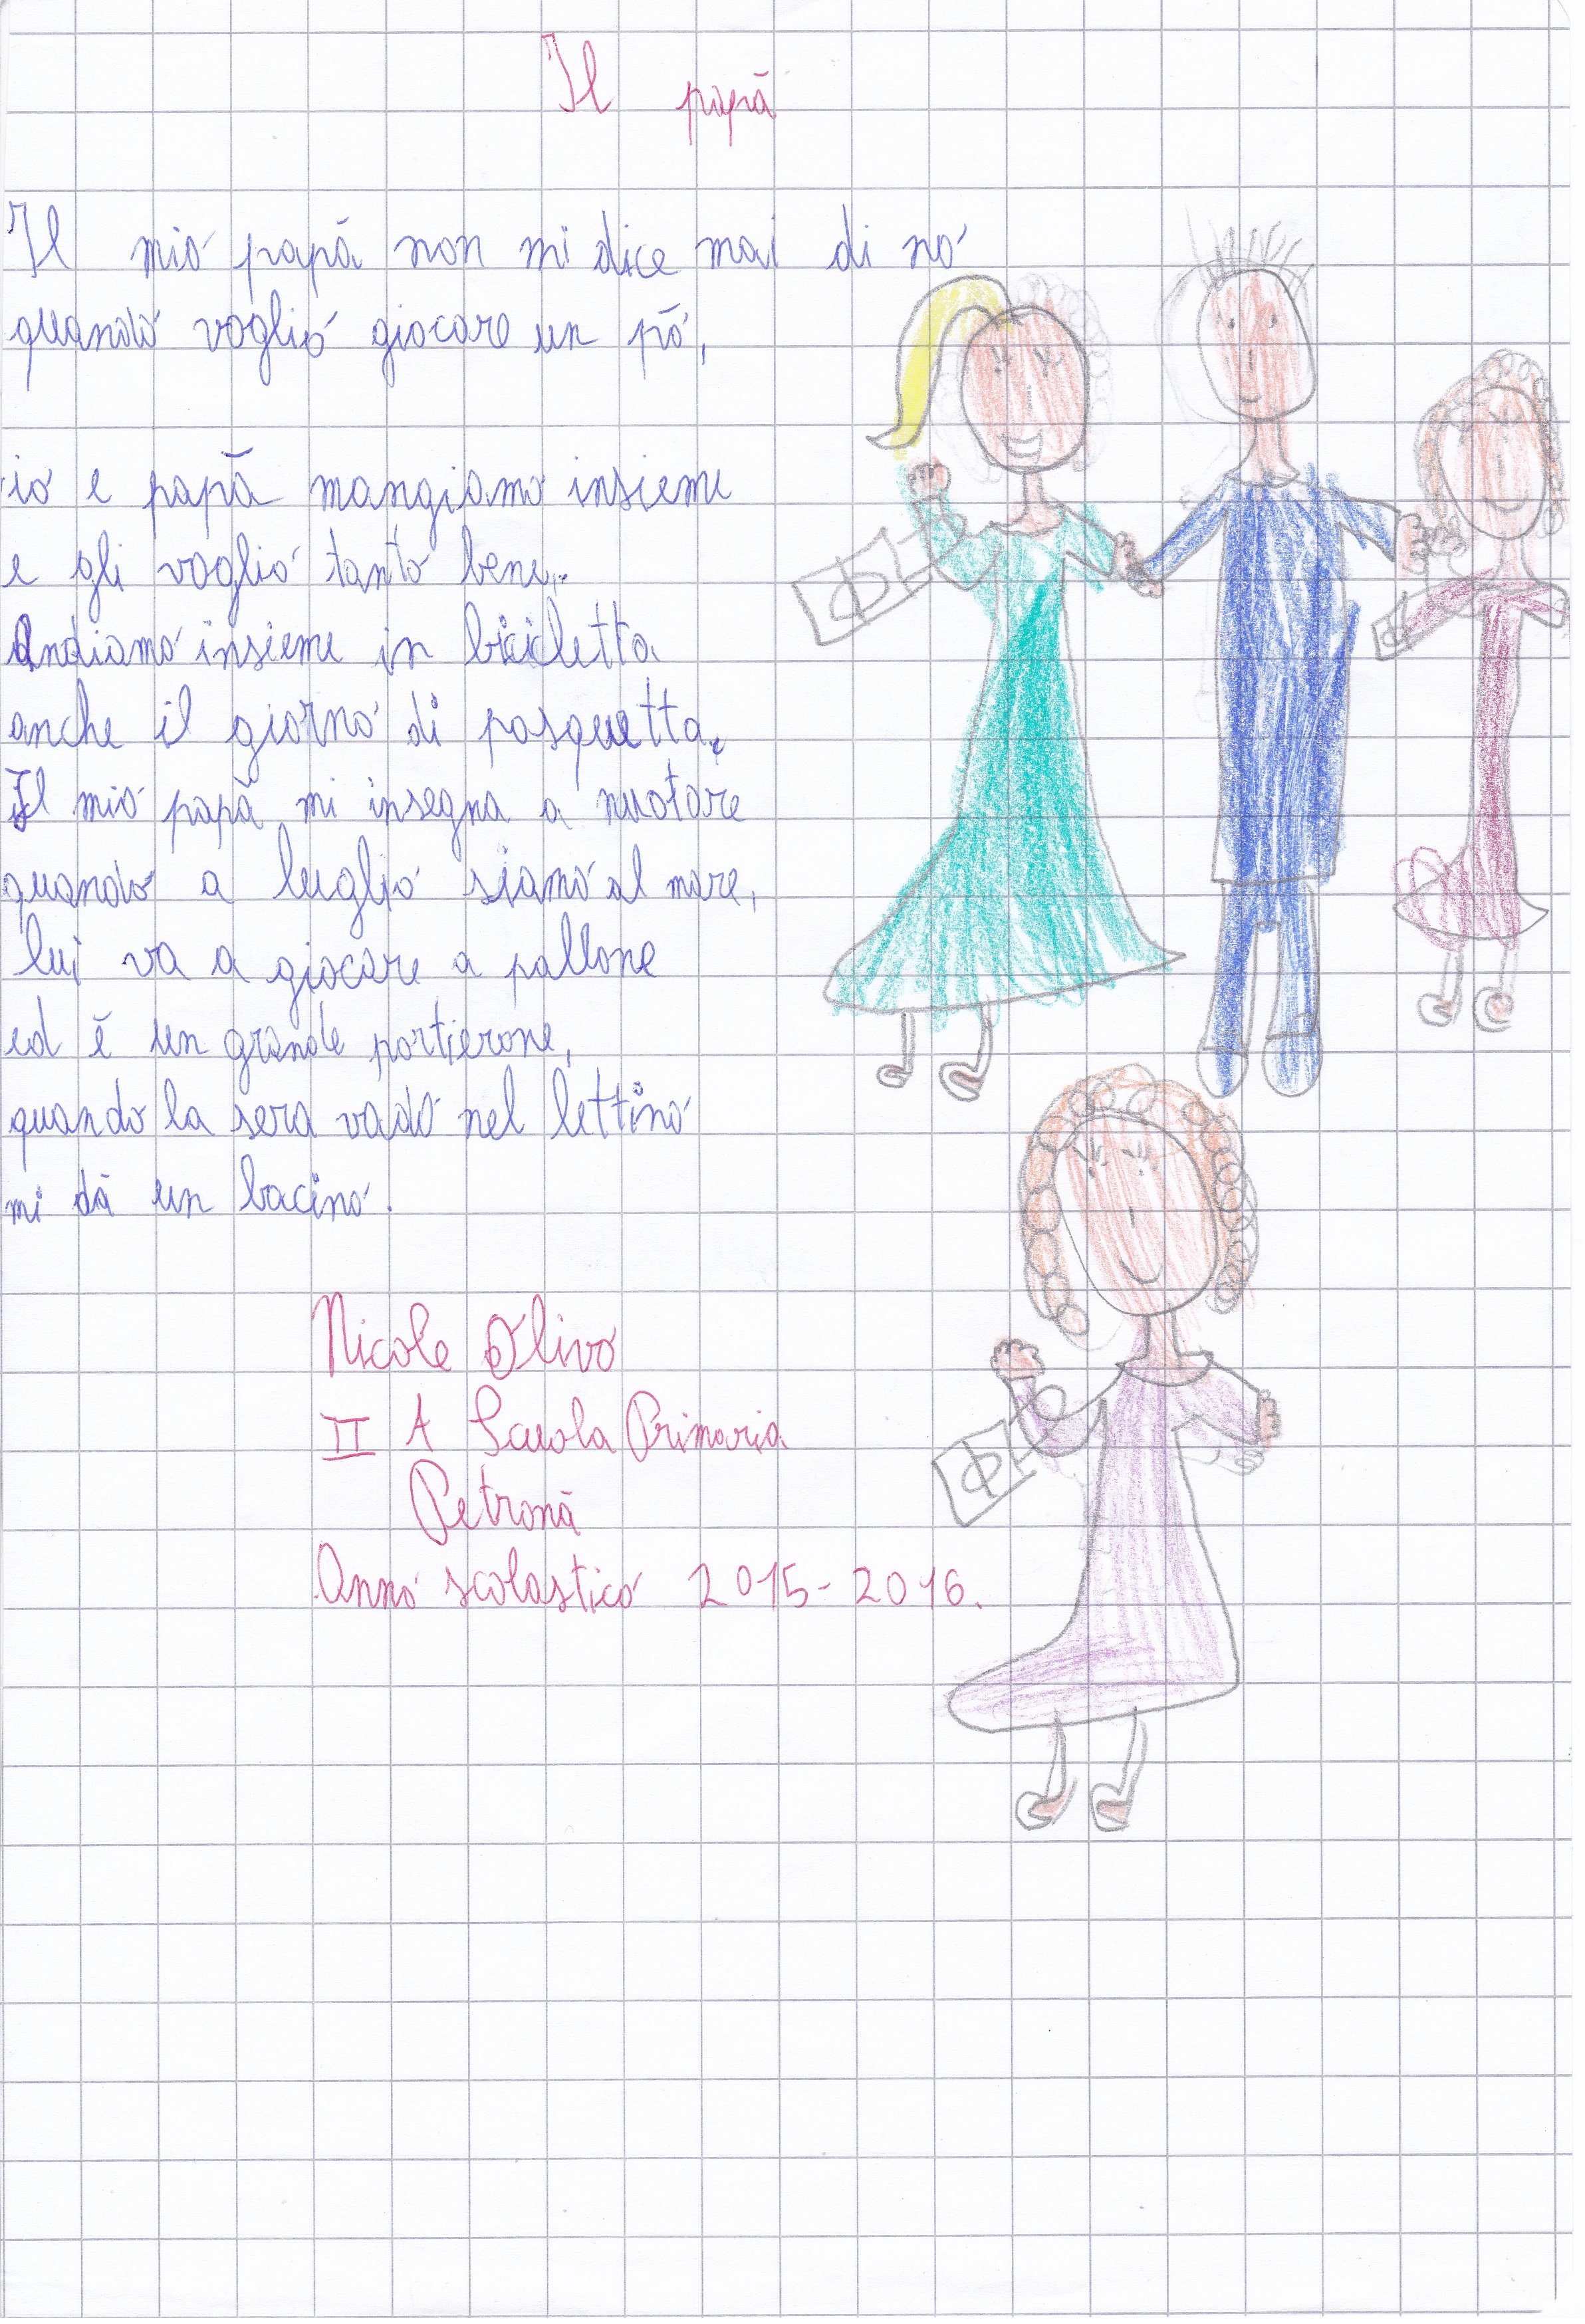 Il papà
Il mio papà non mi dice mai di no
quando voglio giocare un pò,
io e papà mangiamo insieme
e gli voglio tanto bene.
Andiamo insieme in bicicletta
anche il giorno di pasquetta.
Il mio papà mi insegna a nuotare
quando a luglio siamo al mare,
lui va a giocare a pallone
ed è un grande portierone,
quando la sera vado nel lettino
mi dà un bacino.
Nicole Olivo
II A Scuola Primaria
Petronà
Anno scolastico 2015-2016.